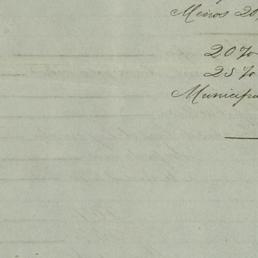 Menos 20
20%
25%
Municipa